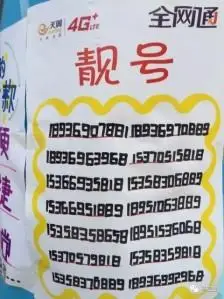 天翼 4G+ LTE 全网通
靓号
18936907881 18936970889
18936963968 15370515818
15366935818 15358306889
15366951889 18951063889
15358358658 18951536068
15370579818 15358359818
15358370889 18936992968
款
便
捷